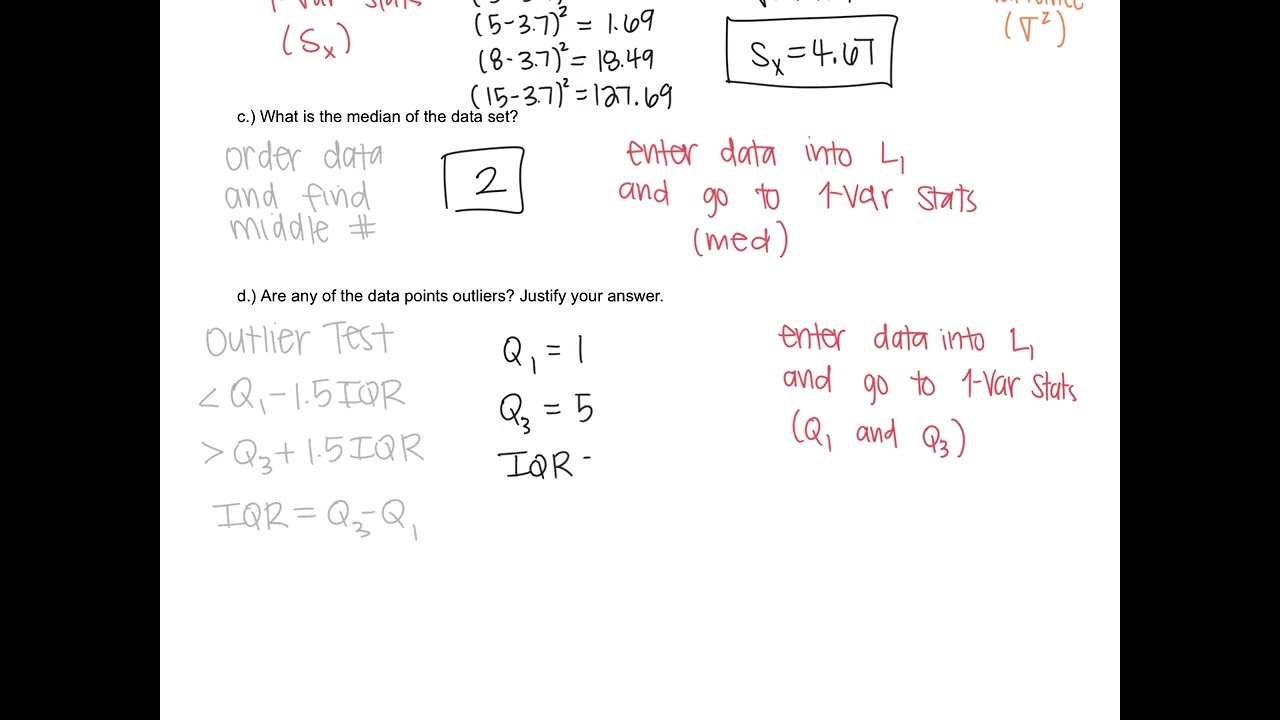 1-Var Stats
(Sx)
(5-3.7)² = 1.69
(8-3.7)² = 18.49
(15-3.7)² = 127.69
Sx = 4.67
(σ²)
c.) What is the median of the data set?
order data
and find
middle #
2
enter data into L₁
and go to 1-Var Stats
(med)
d.) Are any of the data points outliers? Justify your answer.
Outlier Test
< Q₁ - 1.5 IQR
> Q₃ + 1.5 IQR
IQR = Q₃ - Q₁
Q₁ = 1
Q₃ = 5
IQR -
enter data into L₁
and go to 1-Var Stats
(Q₁ and Q₃)